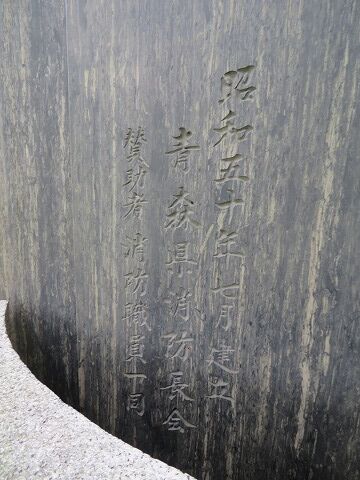 昭和五十年七月建立
青森県消防長会
賛助者消防職員一同